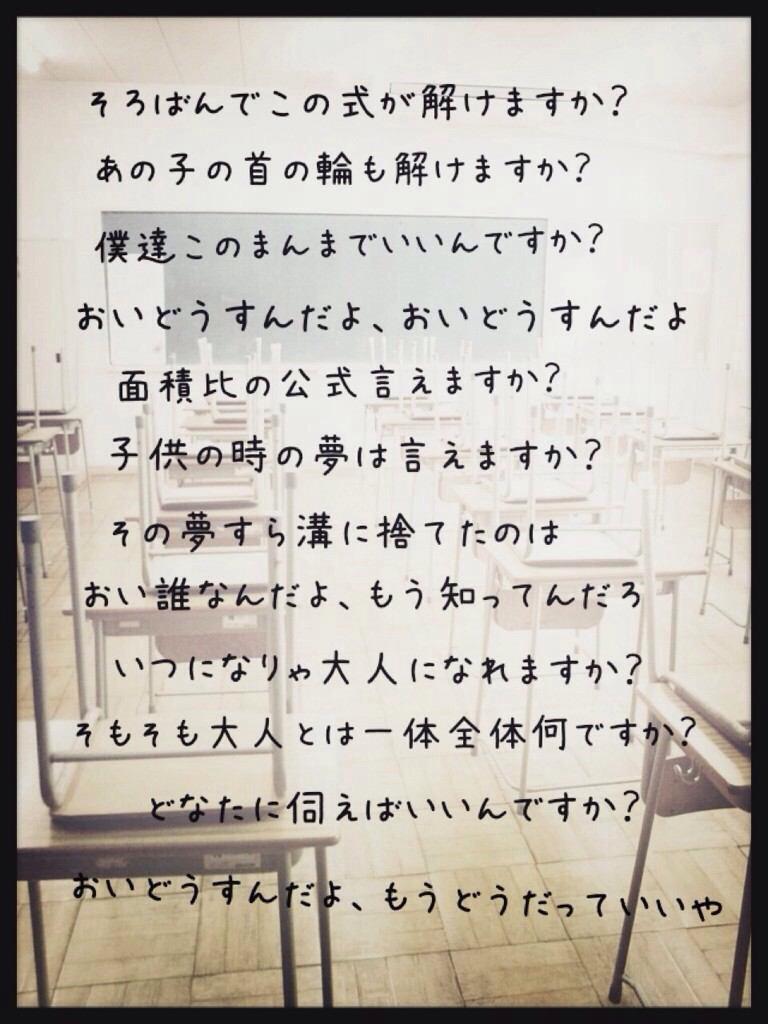 そろばんでこの式が解けますか?
あの子の首の輪も解けますか?
僕達このまんまでいいんですか?
おいどうすんだよ、おいどうすんだよ
面積比の公式言えますか?
子供の時の夢は言えますか?
その夢すら溝に捨てたのは
おい誰なんだよ、もう知ってんだろ
いつになりゃ大人になれますか?
そもそも大人とは一体全体何ですか?
どなたに伺えばいいんですか?
おいどうすんだよ、もうどうだっていいや